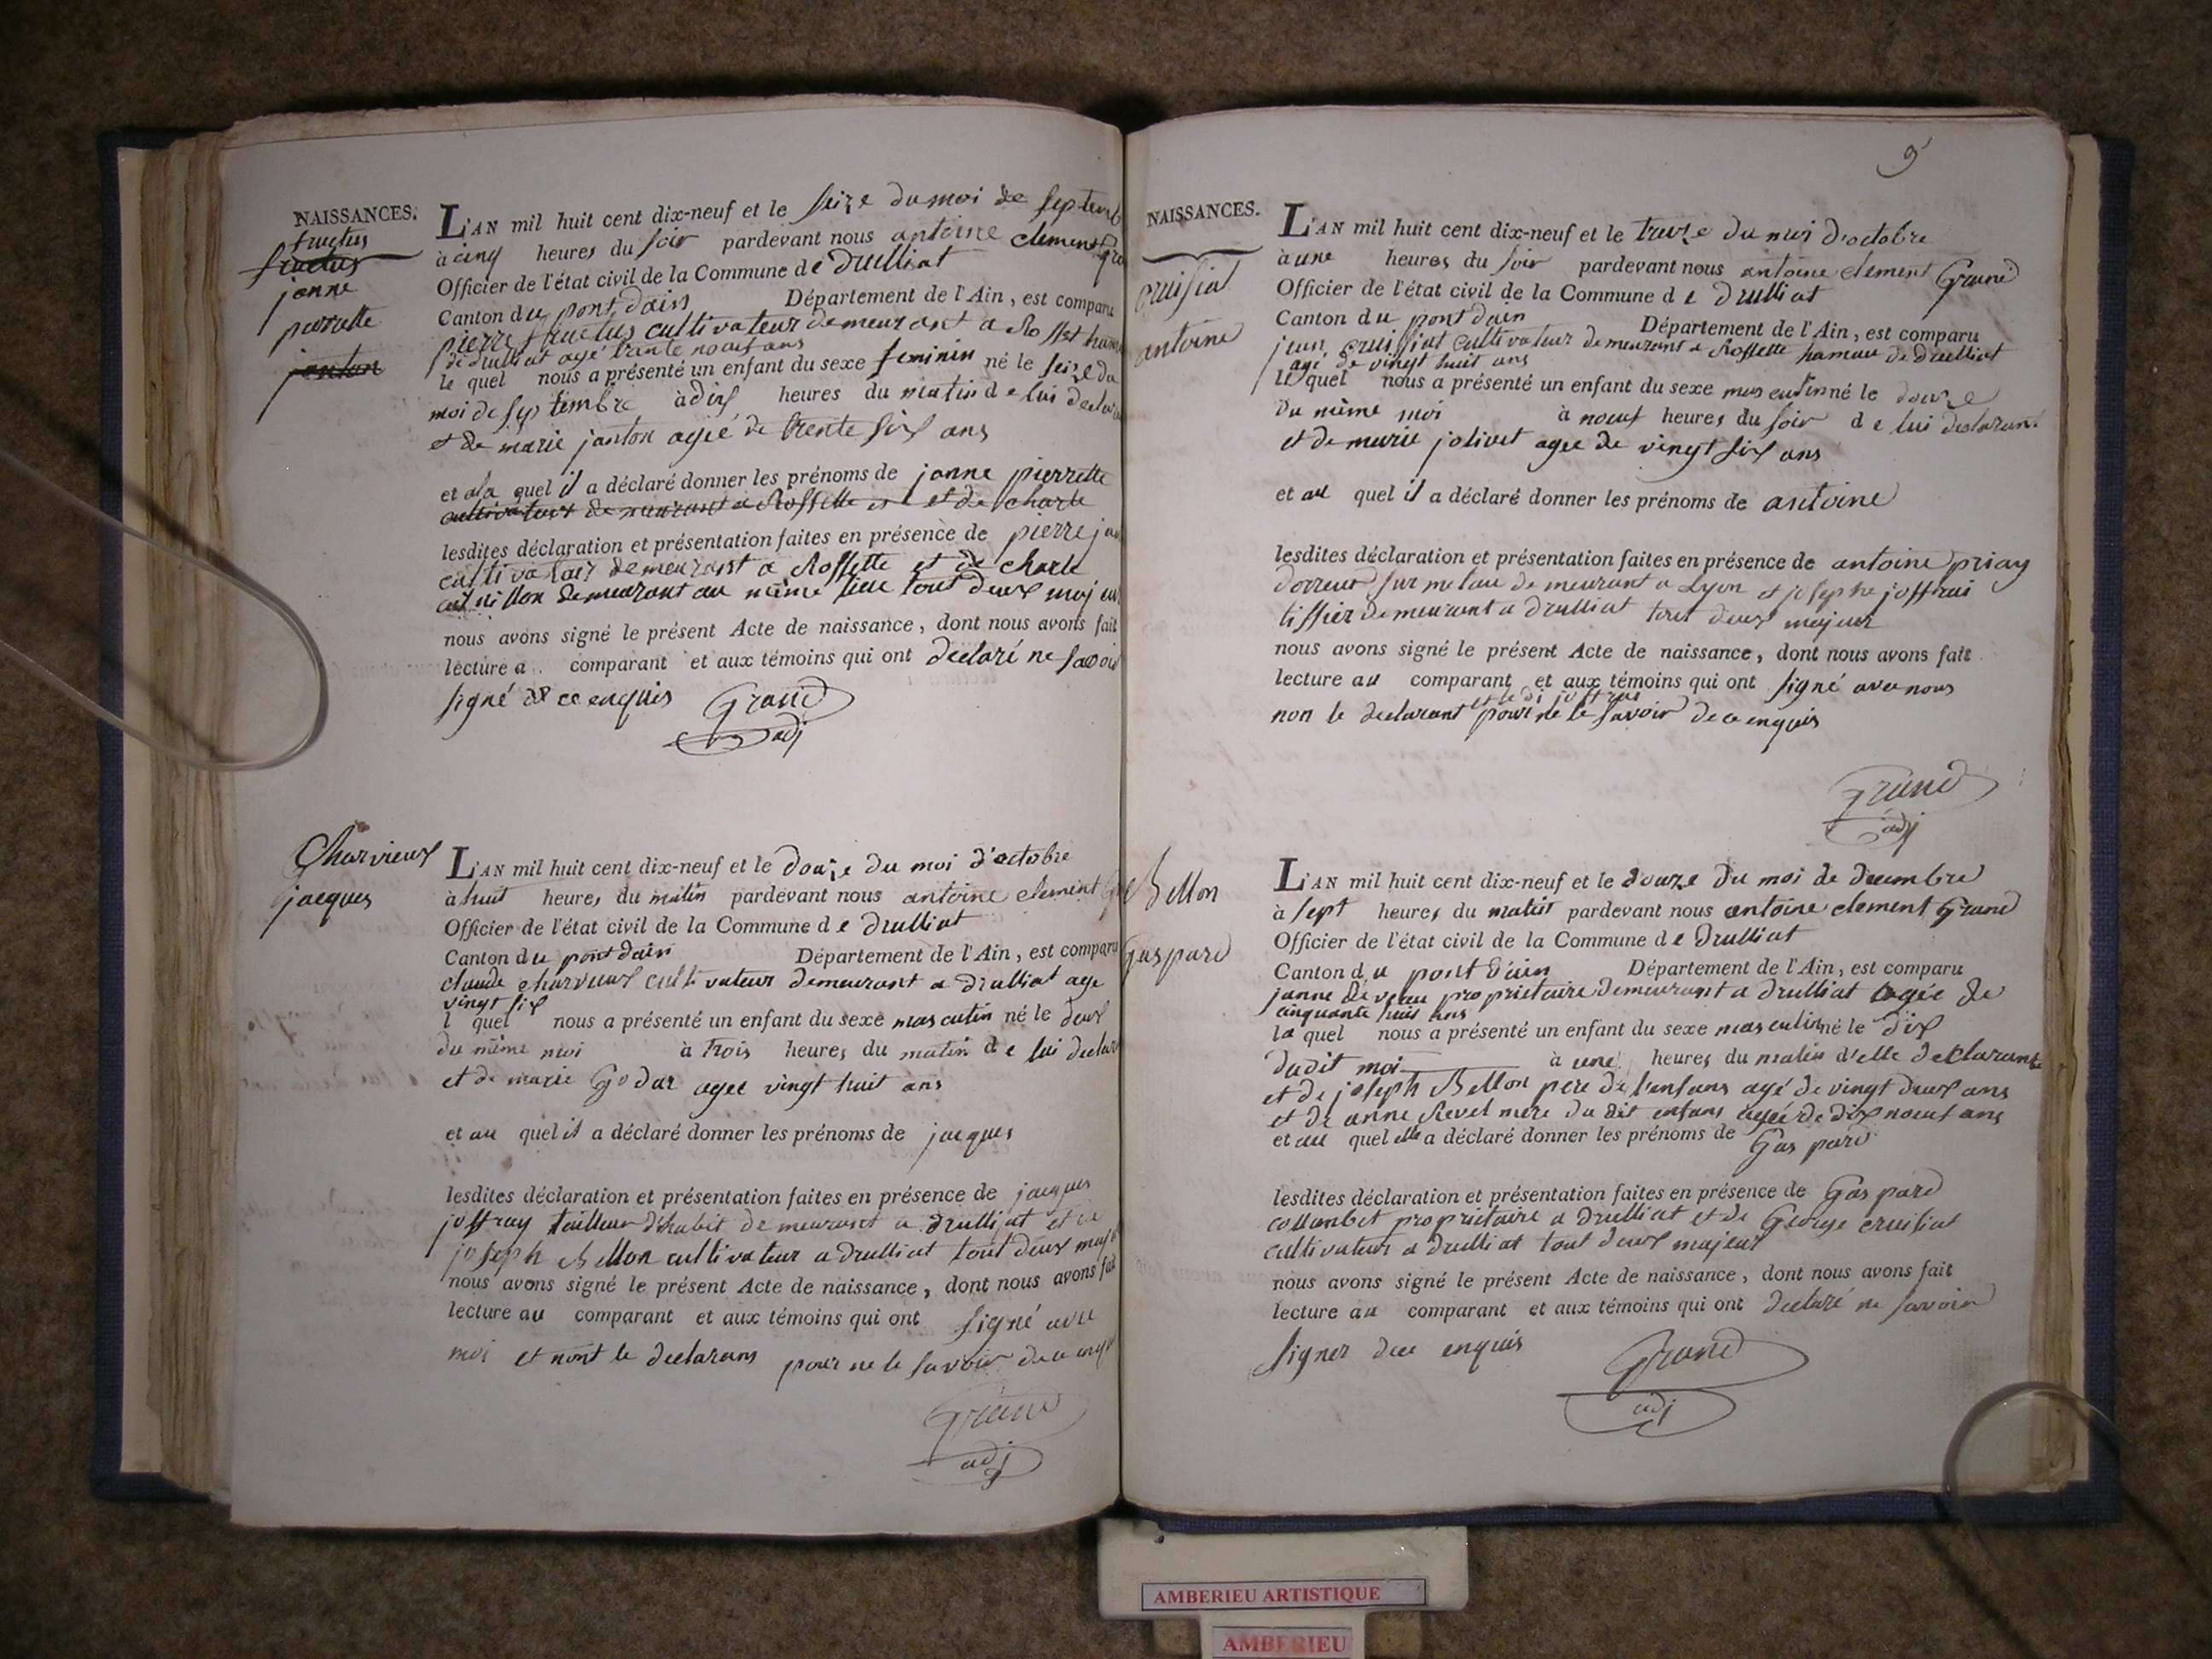 NAISSANCES.
fructus
fructus
janne
pierrette
janton
L'AN mil huit cent dix-neuf et le seize du moi de septemb
à cinq heures du soir pardevant nous antoine clement Gra
Officier de l'état civil de la Commune de Drulliat
Canton du pont dain Département de l'Ain, est comparu
pierre fructus cultivateur demeurant a Rossette hame
de drulliat agé trante noeuf ans
le quel nous a présenté un enfant du sexe feminin né le seize du
moi de septembre à dix heures du matin de lui declara
et de marie janton agée de trente six ans
et a la quel il a déclaré donner les prénoms de janne pierrette
cultivateur demeurant a Rossette et de charle
lesdites déclaration et présentation faites en présence de pierre jan
cultivateur demeurant a Rossette et de charle
demeurant au même lieu tout deux majeur
nous avons signé le présent Acte de naissance, dont nous avons fait
lecture a comparant et aux témoins qui ont declaré ne savoir
signé de ce enquis Grand
adj
Charvieux
jacques
L'AN mil huit cent dix-neuf et le douze du moi d'octobre
à huit heures du matin pardevant nous antoine clement
Officier de l'état civil de la Commune de Drulliat
Canton du pont dain Département de l'Ain, est comparu
claude charvieux cultivateur demeurant a drulliat age
vingt six
l quel nous a présenté un enfant du sexe masculin né le deux
du même moi à trois heures du matin de lui declara
et de marie Godar agee vingt huit ans
et au quel il a déclaré donner les prénoms de jacques
lesdites déclaration et présentation faites en présence de jacques
joffray tailleur d'habit demeurant a drulliat et de
joseph Bellon cultivateur a drulliat tout deux maje
nous avons signé le présent Acte de naissance, dont nous avons fait
lecture au comparant et aux témoins qui ont signé avec
moi et nont le declarans pour ne le savoir de ce enqui
Grand
adj
9
NAISSANCES.
cruisiat
antoine
L'AN mil huit cent dix-neuf et le treize du moi d'octobre
à une heures du soir pardevant nous antoine clement Grand
Officier de l'état civil de la Commune de Drulliat
Canton du pont dain Département de l'Ain, est comparu
jean cruisiat cultivateur demeurant a Rossette hamau de Drulliat
agé de vingt huit ans
le quel nous a présenté un enfant du sexe masculin né le douze
du même moi à noeuf heures du soir de lui declarant
et de marie jolivet agee de vingt six ans
et au quel il a déclaré donner les prénoms de antoine
lesdites déclaration et présentation faites en présence de antoine priay
doreur sur metau demeurant a Lyon et josephe joffrai
tissier demeurant a drulliat tout deux majeur
nous avons signé le présent Acte de naissance, dont nous avons fait
lecture au comparant et aux témoins qui ont signé avec nous
et le di joffrai
non le declarant pour ne le savoir de ce enquis
Grand
adj
Bellon
Gaspard
L'AN mil huit cent dix-neuf et le douze du moi de decembre
à sept heures du matin pardevant nous antoine clement Grand
Officier de l'état civil de la Commune de Drulliat
Canton du pont d'ain Département de l'Ain, est comparu
janne proprietaire demeurant a drulliat agée de
cinquante huit ans
la quel nous a présenté un enfant du sexe masculin né le dix
dudit moi à une heures du matin d'elle declarante
et de joseph Bellon pere de l'enfans agé de vingt deux ans
et de anne Revel mere du dit enfans agée de dix noeuf ans
et au quel elle a déclaré donner les prénoms de Gaspard
lesdites déclaration et présentation faites en présence de Gaspard
collombet proprietaire a drulliat et de George cruisiat
cultivateur a drulliat tout deux majeur
nous avons signé le présent Acte de naissance, dont nous avons fait
lecture au comparant et aux témoins qui ont declaré ne savoir
signer de ce enquis Grand
adj
AMBERIEU ARTISTIQUE
AMBERIEU